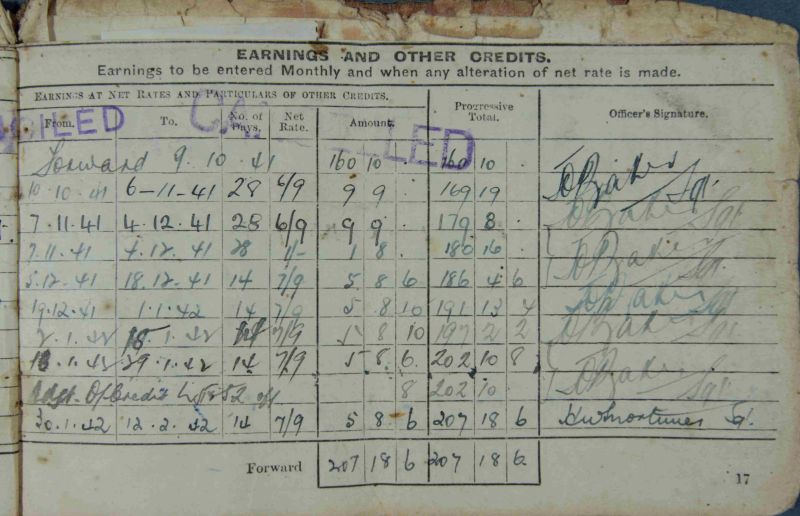 EARNINGS AND OTHER CREDITS.
Earnings to be entered Monthly and when any alteration of net rate is made.
EARNINGS AT NET RATES AND PARTICULARS OF OTHER CREDITS.
From. To. No. of Days. Net Rate. Amount. Progressive Total. Officer's Signature.
CANCELLED
Forward 9.10.41 160 10 . 160 10 .
10.10.41 6-11-41 28 6/9 9 9 . 169 19 Baker Sgt
7.11.41 4.12.41 28 6/9 9 9 . 179 8 . Baker Sgt
7.11.41 4.12.41 28 1/- 1 8 . 180 16 . Baker Sgt.
5.12.41 18.12.41 14 7/9 5 8 6 186 4 6
19.12.41 1.1.42 14 7/9 5 8 10 191 13 4 Baker Sgt
2.1.42 15.1.42 14 7/9 5 8 10 197 2 2 Baker Sgt
16.1.42 29.1.42 14 7/9 5 8 6 202 10 8 Baker
Adjt. Of Credit 8 202 10 Sgt.
30.1.42 12.2.42 14 7/9 5 8 6 207 18 6 Sgt.
Forward 207 18 6 207 18 6
17